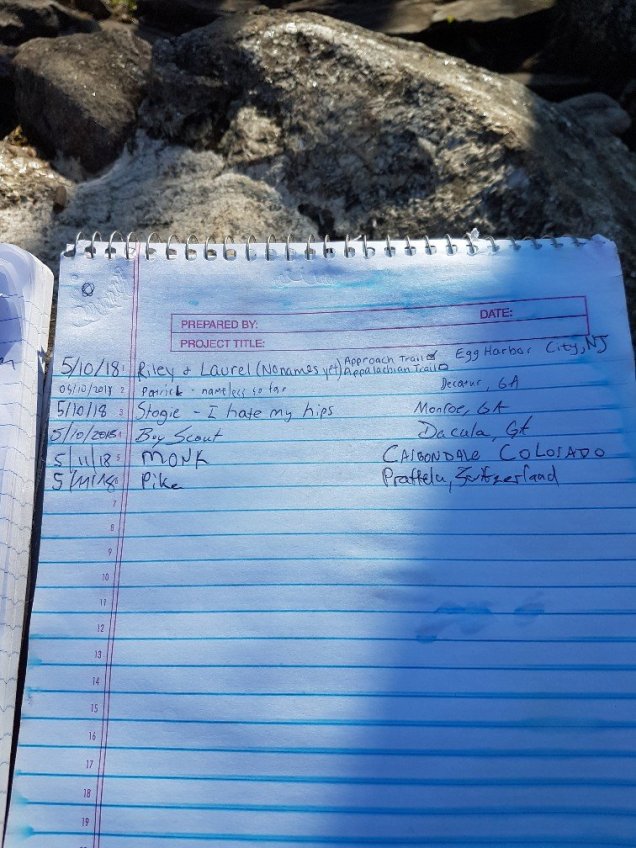 PREPARED BY: DATE:
PROJECT TITLE:
5/10/18 1 Riley & Laurel (No names yet) Approach Trail ☑ Appalachian Trail ☐ Egg Harbor City, NJ
05/10/2018 2 Patrick - nameless so far Decatur, GA
5/10/18 3 Stogie - I hate my hips Monroe, GA
5/10/2018 4 Boy Scout Dacula, GA
5/11/18 5 MONK CARBONDALE COLORADO
5/11/18 6 Pike Pratteln, Switzerland
7
8
9
10
11
12
13
14
15
16
17
18
19